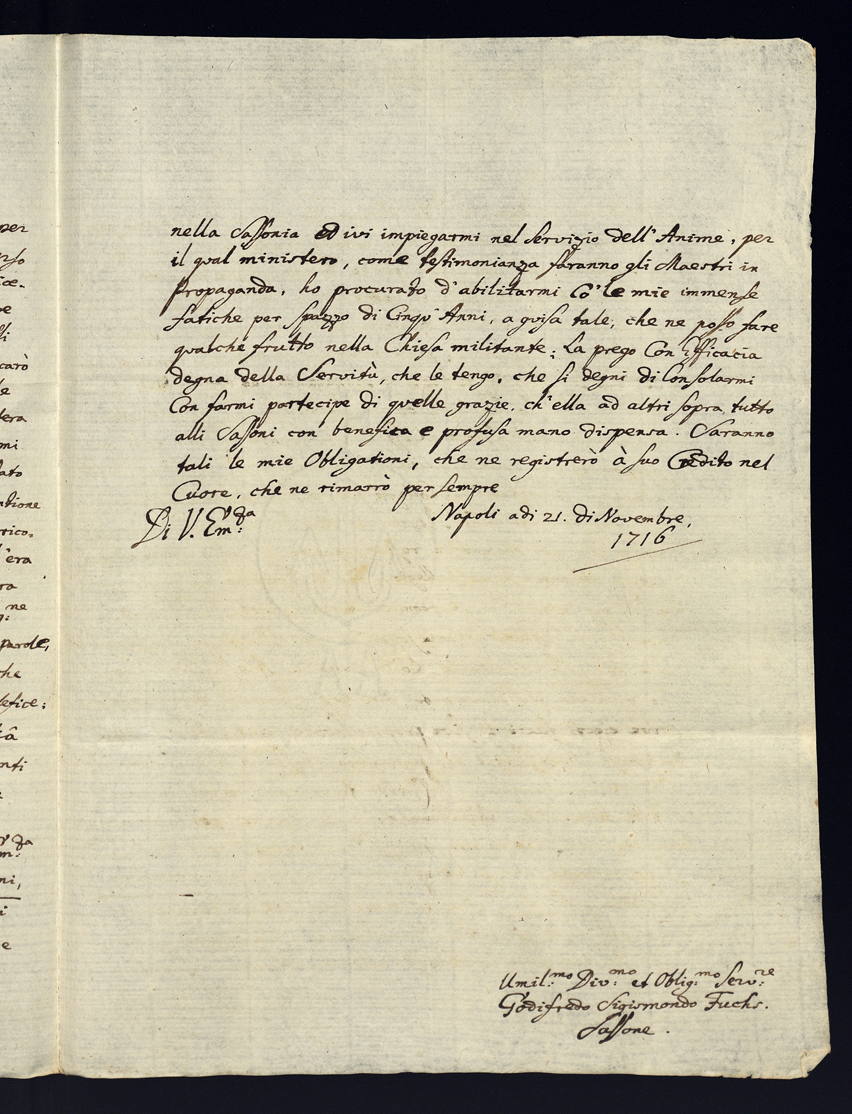 per
rso
ice.
pe
lli
carò
le
tera
mi
lato
ntione
rico.
l'era
ra
ne
parole,
che
lefice;
tâ
nti
ni,
i
e
nella Sassonia ed ivi impiegarmi nel Servizio dell'Anime, per
il qual ministero, come testimonianza faranno gli Maestri in
Propaganda, ho procurato d'abilitarmi Co'le mie immense
fatiche per spazzo di Cinqu'Anni, a guisa tale, che ne posso fare
qualche frutto nella Chiesa militante; La prego Con Efficacia
degna della Servitù, che le tengo, che si degni di Consolarmi
Con farmi partecipe di quelle grazie, ch'ella ad altri sopra tutto
alli Sassoni con benefica e profusa mano dispensa. Saranno
tali le mie Obligationi, che ne registrerò à suo Credito nel
Cuore, che ne rimarrò per sempre
Di V. Em:za Napoli adi 21. di Novembre,
1716
Umil:mo Div:mo et Oblig:mo Serv:re
Godifredo Sigismondo Fuchs.
Sassone.